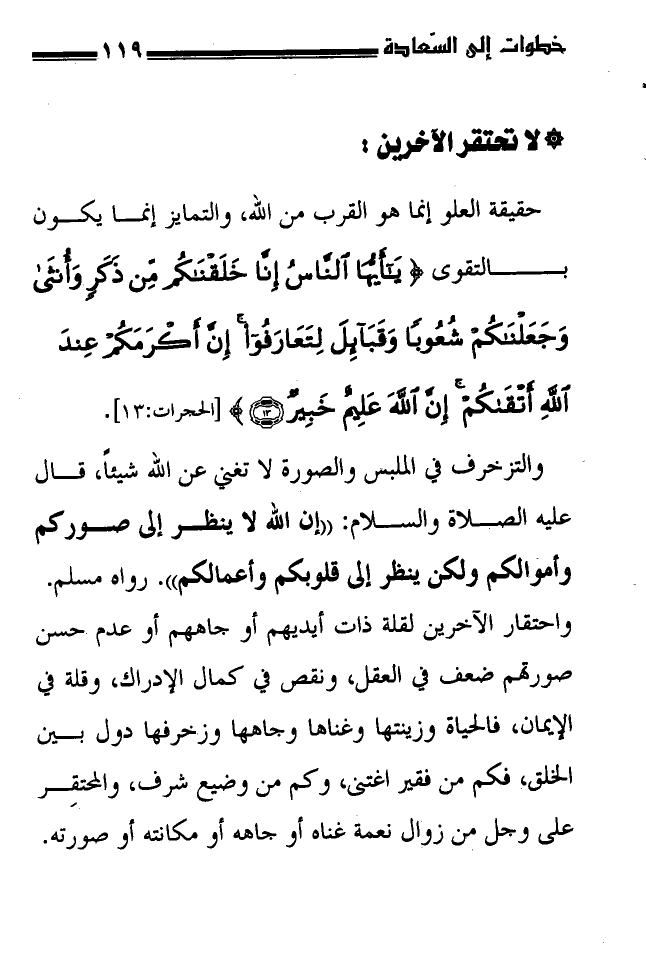 خطوات إلى السعادة ١١٩
۞ لا تحتقر الآخرين :
حقيقة العلو إنما هو القرب من الله، والتمايز إنمــا يكــون
بـــــــالتقوى ﴿ يَٰٓأَيُّهَا ٱلنَّاسُ إِنَّا خَلَقْنَٰكُم مِّن ذَكَرٍ وَأُنثَىٰ
وَجَعَلْنَٰكُمْ شُعُوبًا وَقَبَآئِلَ لِتَعَارَفُوٓا۟ ۚ إِنَّ أَكْرَمَكُمْ عِندَ
ٱللَّهِ أَتْقَىٰكُمْ ۚ إِنَّ ٱللَّهَ عَلِيمٌ خَبِيرٌ ١٣ ﴾ [الحجرات:١٣].
والتزخرف في الملبس والصورة لا تغني عن الله شيئاً، قــال
عليه الصــلاة والســلام: ((إن الله لا ينظــر إلى صــوركم
وأموالكم ولكن ينظر إلى قلوبكم وأعمالكم)). رواه مسلم.
واحتقار الآخرين لقلة ذات أيديهم أو جاههم أو عدم حسن
صورتهم ضعف في العقل، ونقص في كمال الإدراك، وقلة في
الإيمان، فالحياة وزينتها وغناها وجاهها وزخرفها دول بــين
الخلق، فكم من فقير اغتنى، وكم من وضيع شرف، والمحتقِــر
على وجل من زوال نعمة غناه أو جاهه أو مكانته أو صورته.